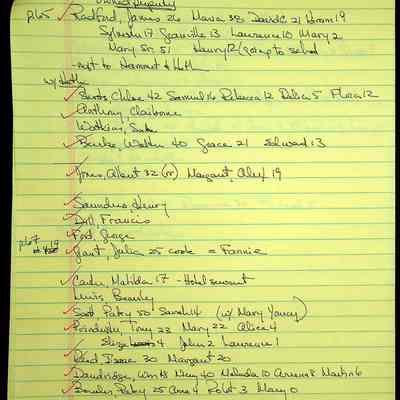 owned property
p65 Radford, James 26 Maria 38 David C 21 Hiram 19
Sylvester 17 Granville 13 Lawrence 10 Mary 2
Mary Sr. 51 Henry 12 (going to school
-next to Hammet & Hoth
w/ Hoth
Scott, Chloe 42 Samuel 16 Rebecca 12 Delia 5 Flora 12
Anthony, Claiborne
Watkins,
Burke, Walker 40 Grace 21 Edward 13
Jones, Albert 32 (rr) Margaret, Alex 19
Saunders, Henry
Dill, Francis
p67 Ford, George
19 Grant, Julia 25 cook = Fannie
Carter, Matilda 17 - Hotel servant
Lewis, Beverly
Scott, Patsy 50 Sarah 14 (w/ Mary Yancey)
Tony 23 Mary 22 Alice 4
Eliza 4 John 2 Lawrence 1
Reed Isaac 30 Margaret 20
Dandridge, Wm 48 Mary 40 Malinda 10 8 Martin 6
Patsy 25 4 Robt 3 Mary 0